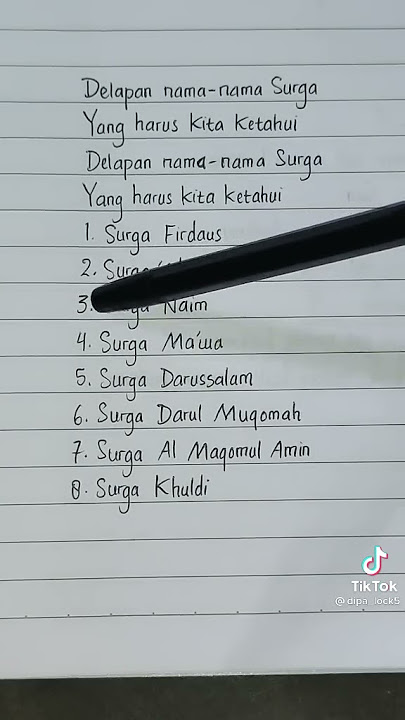 Delapan nama-nama Surga
Yang harus kita ketahui
Delapan nama-nama Surga
Yang harus kita ketahui
1. Surga Firdaus
2. Surga
3. Naim
4. Surga Ma'wa
5. Surga Darussalam
6. Surga Darul Muqomah
7. Surga Al Maqomul Amin
8. Surga Khuldi
TikTok
@dipa_lock5